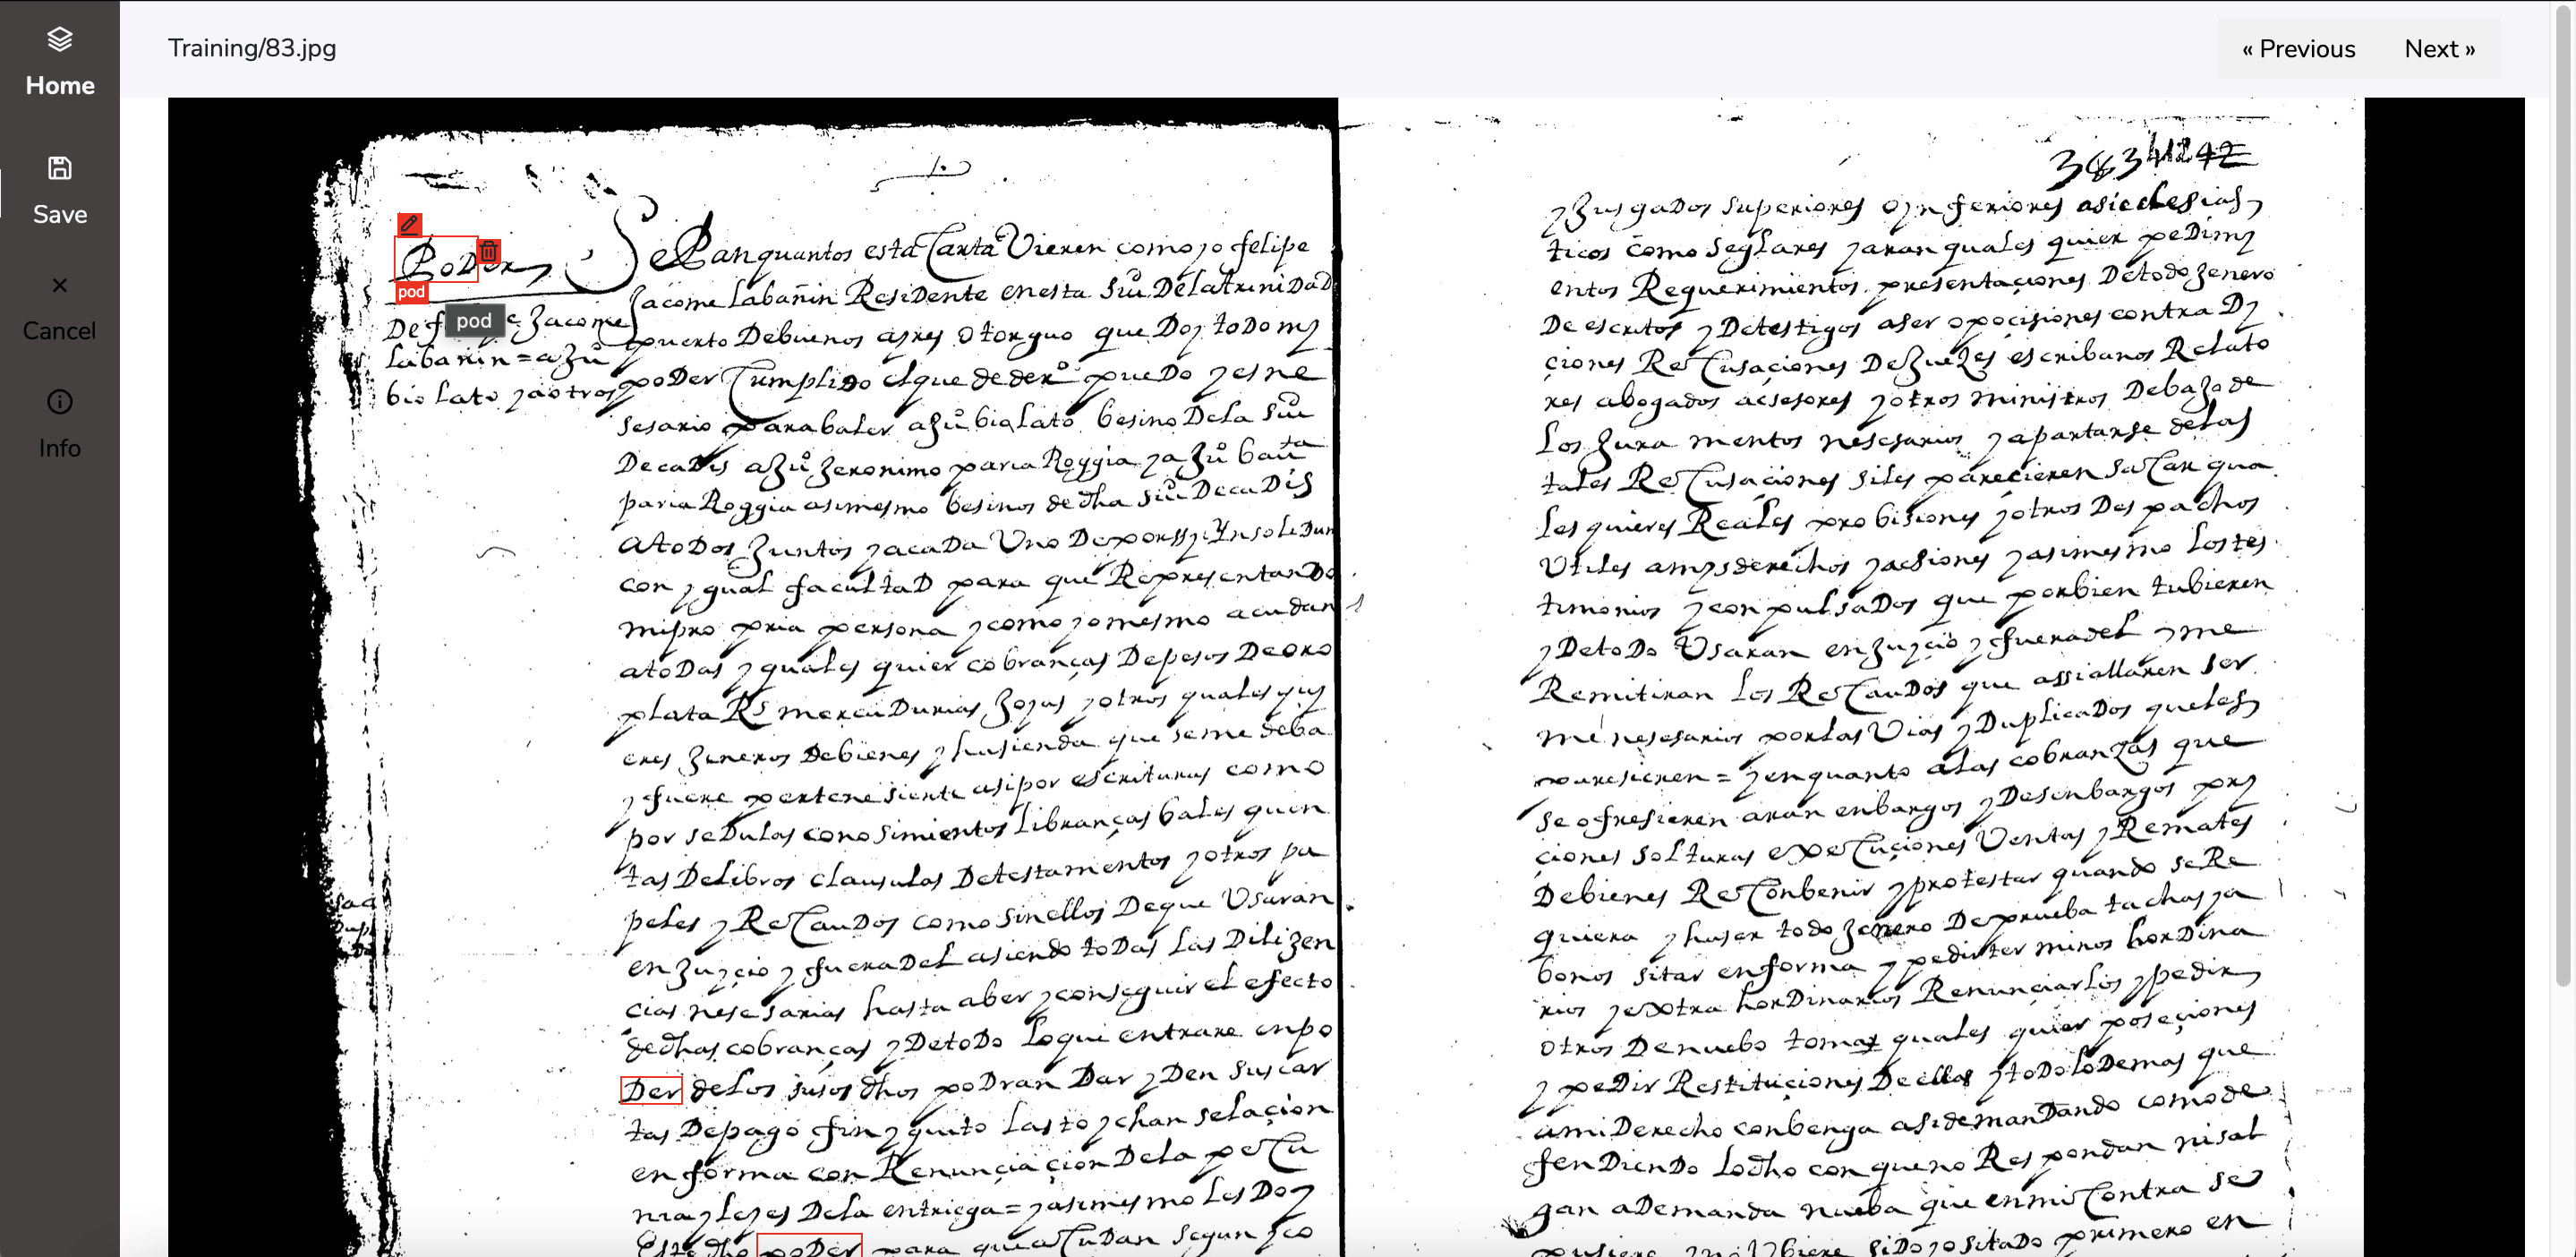 Home
Save
Cancel
Info
Training/83.jpg
« Previous
Next »
pod
pod
Poder
De felipe Jacome
Labañin = a Ju
bio Lato y aotros
Sepan quantos esta Carta Vieren como yo felipe
Jacome Labañin Residente en esta Siu De la trinidad
puerto De buenos ayres otorguo que Doy todo my
poder Cumplido el que de der puedo y es ne
sesario para baler a Ju bio lato besino De la Siu
De cadis a Ju Jeronimo paria Roggia y a Ju baut
paria Roggia asimesmo besinos de dha Siu De cadis
a todos Juntos y a cada Uno De por ssi Ynsolidun
con ygual facultad para que Representando
mi pro pria persona y como yo mesmo acudan
a todas y quales quier cobranças De pesos De oro
plata Rs mercadurias Joyas y otros quales qui
eres Jeneros De bienes y hasienda que se me deba
y fuere pertenesiente asi por escrituras como
por sedulas conosimientos libranças bales quen
tas De libros clausulas De testamentos y otros pa
peles y ReCaudos como sin ellos De que Usaran
en Juyçio y fuera Del asiendo todas las Dilijen
cias nesesarias hasta aber y conseguir el efecto
de dhas cobranças y De todo Lo que entrare en po
Der de los susos dhos podran Dar y Den su s car
tas De pago fin y quito Lasto y chanselaçion
en forma con Renunciaçion De la peCu
nia y leyes De la entriega = y asimesmo les Doy
Este dho poder para que aCudan segun
383
y Jusgados superiores o ynferiores asi eclesias
ticos como seglares y aran quales quier pedimy
entos Requerimientos presentaçiones De todo Jenero
De escritos y De testigos aser opoçisiones contra Dy
çiones ReCusaçiones De Juezes escribanos Relato
res abogados acsesores y otros ministros Debajo de
Los Jura mentos nesesarios y apartarse de las
tales ReCusaçiones si les pareçieren saCar qua
les quieres Reales probisiones y otros Des pachos
Utiles a mys derechos y acsiones y asimesmo los tes
timonios y conpulsados que por bien tubieren
y De todo Usaran en Juyçio y fuera del y me
Remitiran los ReCaudos que assi allaren ser
me nesesarios por las Vias y Duplicados que les
paresieren = y en quanto a las cobranzas que
se ofresieren aran enbargos y Desenbargos pry
çiones solturas exeCuçiones Ventas y Remates
De bienes ReConbenir y protestar quando se Re
quiera y haser todo Jenero De prueba tachas y a
bonos sitar en forma y pedir ter minos hordina
rios y extra hordinarios Renunçiarlos y pedir
otros De nuebo tomar quales quier poseçiones
y pedir Restituçiones De ellas y todo lo Demas que
a mi Derecho conbenga asi demandando como de
fenDiendo lo dho con que no Respondan ni sal
gan a Demanda nueba que en mi Contra se
pusiere y no Ubiere sido yo sitado primero en